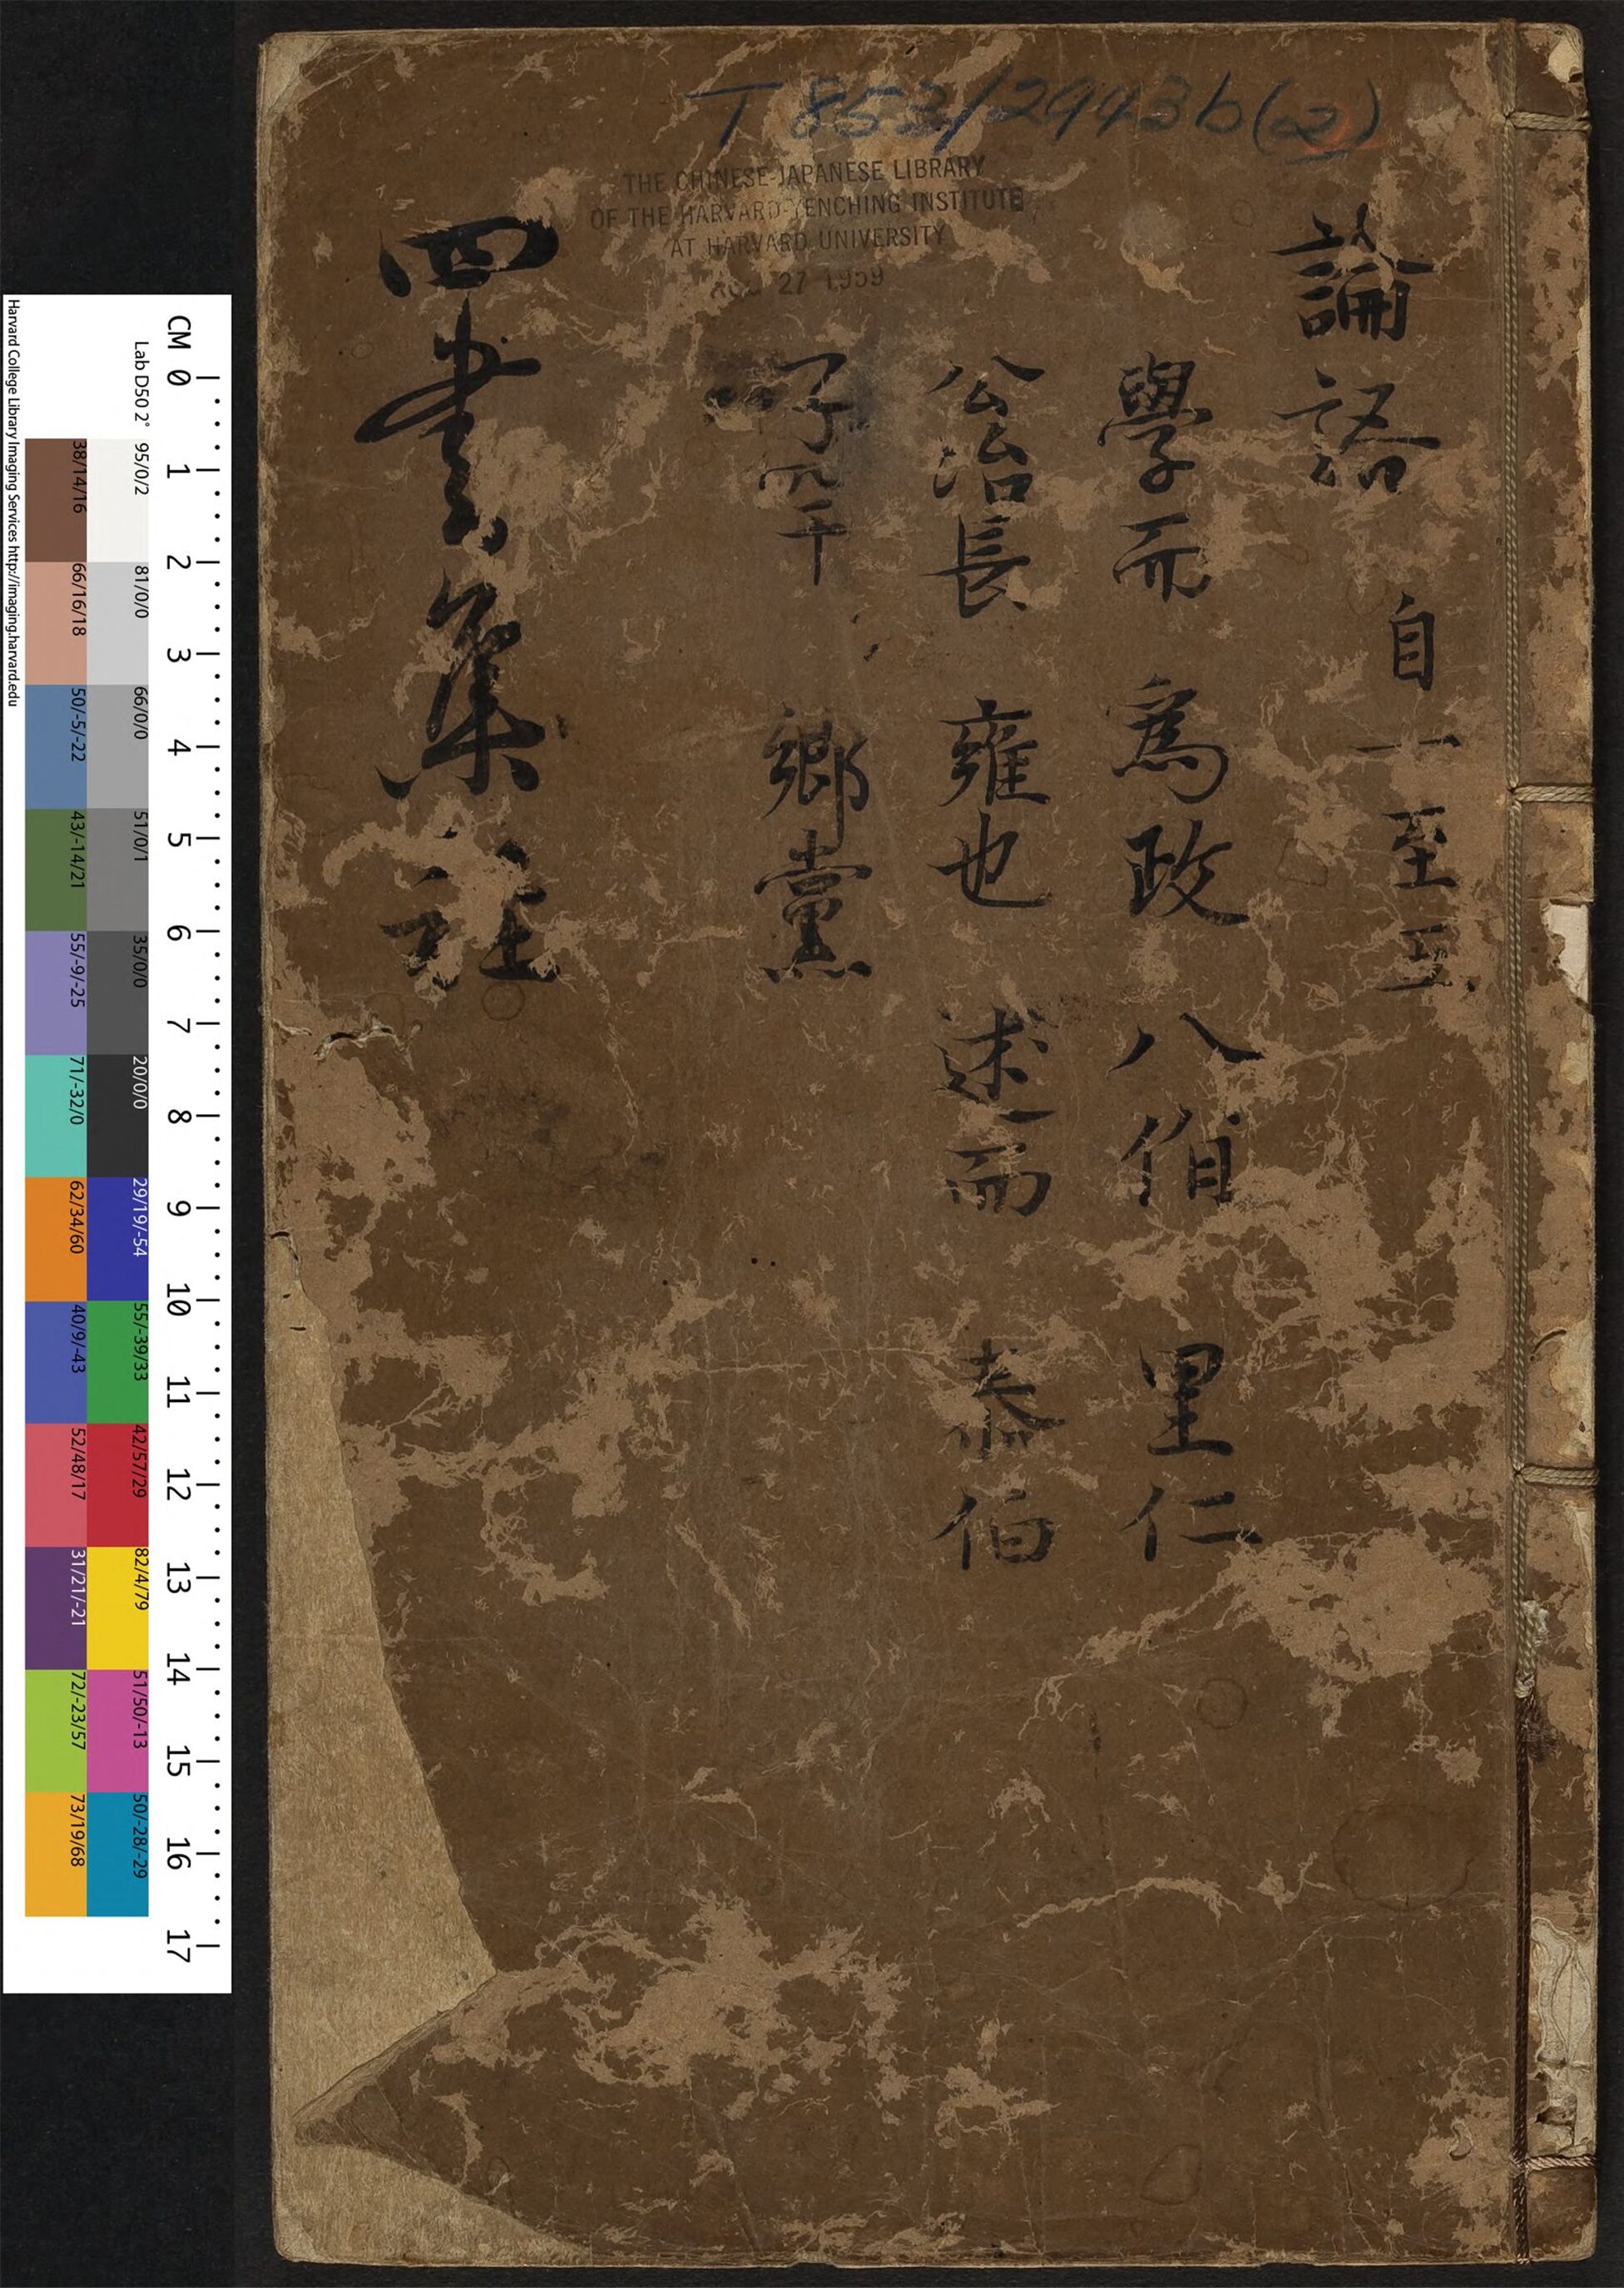 T 852/2943b(2)
THE CHINESE-JAPANESE LIBRARY
OF THE HARVARD-YENCHING INSTITUTE
AT HARVARD UNIVERSITY
AUG 27 1959
論語 自一至五
學而 爲政 八佾 里仁
公冶長 雍也 述而 泰伯
子罕 鄉黨
四書集註
CM 0 1 2 3 4 5 6 7 8 9 10 11 12 13 14 15 16 17
Lab D50 2° 95/0/2 81/0/0 66/0/0 51/0/1 35/0/0 20/0/0 29/19/-54 55/-39/33 42/57/29 82/4/79 51/50/-13 50/-28/-29
38/14/16 66/16/18 50/-5/-22 43/-14/21 55/-9/-25 71/-32/0 62/34/60 40/9/-43 52/48/17 31/21/-21 72/-23/57 73/19/68
Harvard College Library Imaging Services http://imaging.harvard.edu